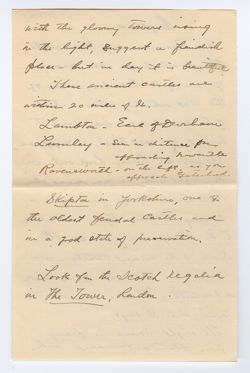 with the gloomy towers rising
in the light, suggest a fiendish
place - but in day it is beautiful
These ancient castles are
within 20 miles of it.
Lambton - Earl of Durham
Lumley - Seen in distance from
approaching Newcastle
Ravensworth - on the left, as you
approach Gateshead
Skipton in Yorkshire, one of
the oldest feudal Castles and
in a good state of preservation.
Look for the Scotch Regalia
in The Tower, London.